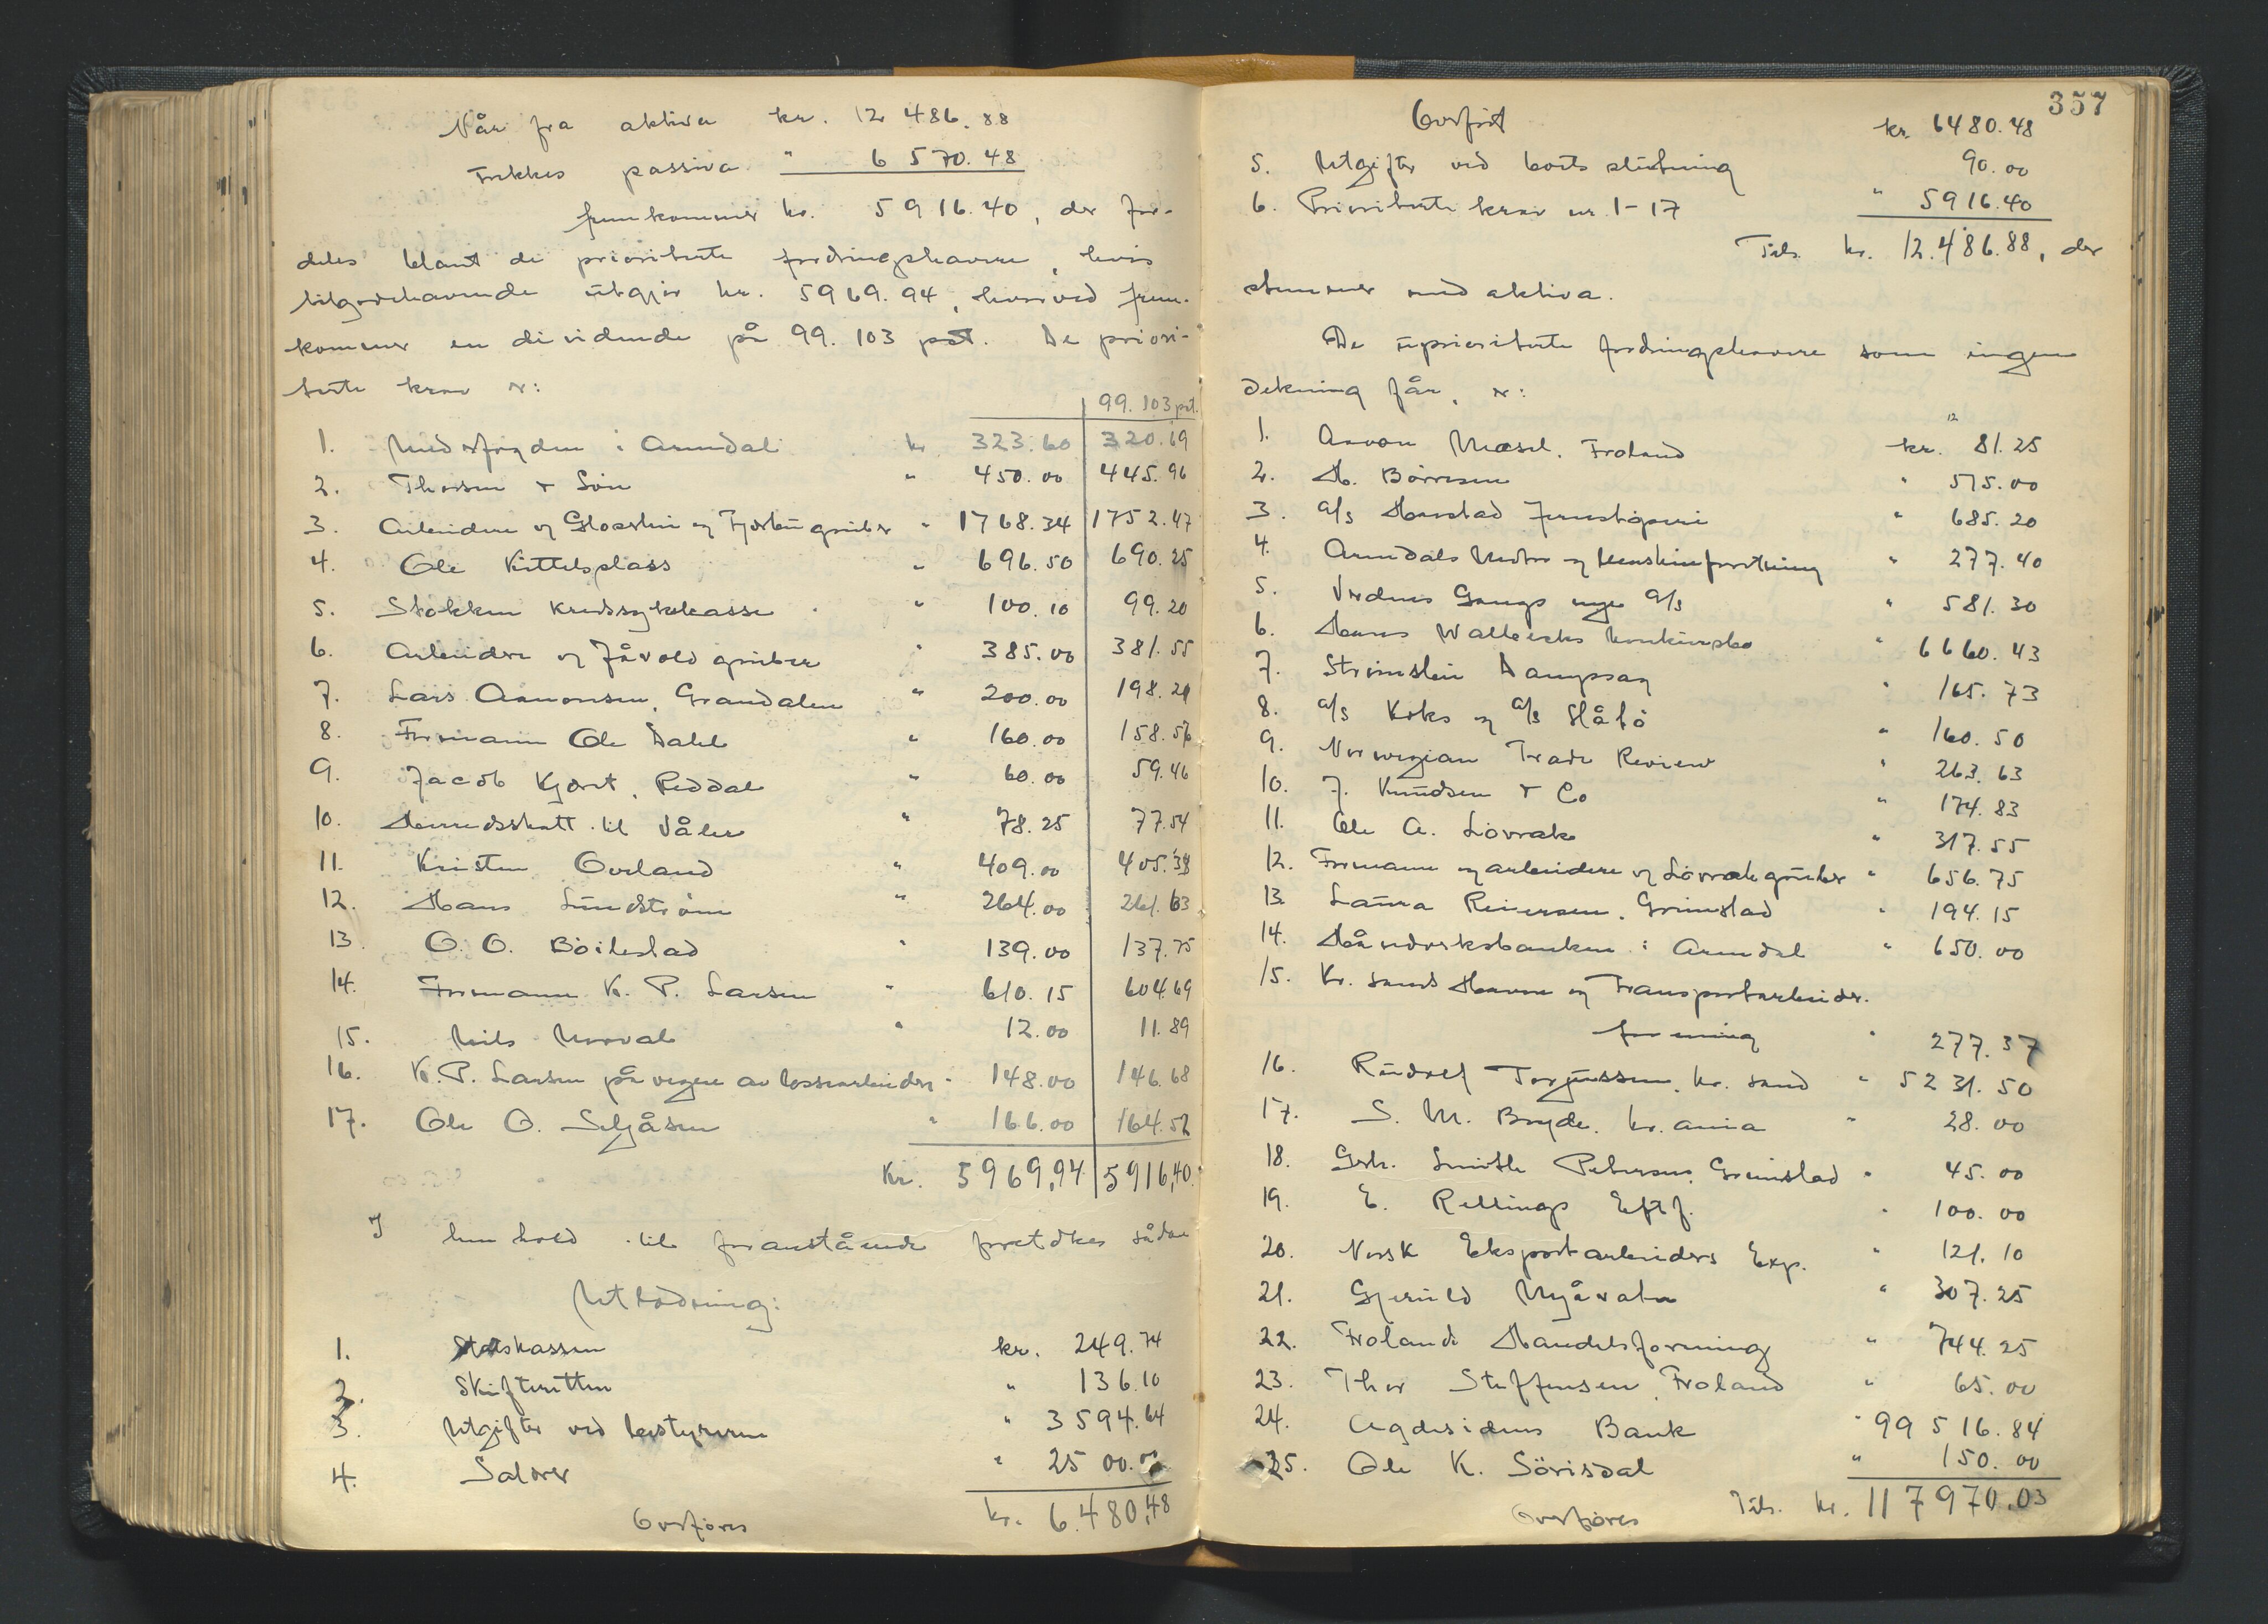 Når fra aktiva kr. 12 486.88
trekkes passiva " 6 570.48
fremkommer kr. 5916.40, der for-
deles blant de prioriterte fordringshavere, hvis
tilgodehavende utgjør kr. 5969.94, hvorved frem-
kommer en dividende på 99.103 pst. De priori-
terte krav er:
99.103 pst.
1. Underfogden i Arendal kr. 323.60 320.69
2. Thorsen & Søn " 450.00 445.96
3. Arbeidere og Gloserhei og Tjorhei gruber " 1768.34 1752.47
4. Ole Kittelsplass " 696.50 690.25
5. Stokken kredssykekasse " 100.10 99.20
6. Arbeidere og Jåvold gruber " 385.00 381.55
7. Lars Aamonsen, Grandalen " 200.00 198.21
8. Formann Ole Dahl " 160.00 158.56
9. Jacob Kjørst, Reddal " 60.00 59.46
10. Herredsskatt til Våler " 78.25 77.54
11. Kristen Overland " 409.00 405.33
12. Hans Lundström " 264.00 261.63
13. O. O. Böilestad " 139.00 137.75
14. Formann K. P. Larsen " 610.15 604.69
15. Nils 12.00 11.89
16. K. P. Larsen på vegne av lossearbeidere " 148.00 146.68
17. Ole O. Seljåsen " 166.00 164.52
Kr. 5969,94 5916,40.
I henhold til foranstående foretokes sådan
Utlodning:
1. Statskassen kr. 249.74
2. Skifteretten " 136.10
3. Utgifter ved bestyreren " 3594.64
4. Salærer " 2500.00
Overføres kr. 6.480,48
357
Overført kr. 6480.48
5. Utgifter ved boets slutning 90.00
6. Prioriterte krav nr. 1-17 " 5916.40
Tils. kr. 12.486.88, der
stemmer med aktiva.
De uprioriterte fordringshavere som ingen
dekning får, er:
1. Aavon Mæsel, Froland kr. 81.25
2. H. Börresen " 575.00
3. A/s Harstad Jernstöperi " 685.20
4. Arendals Motor og Maskinforretning " 277.40
5. Verdens Gangs nye A/s " 581.30
6. Hans Wallecks konkursbo " 6660.43
7. Strömshei Dampsag " 165.73
8. A/s Koks og A/s Slåtö " 160.50
9. Norwegian Trade Review " 263.63
10. J. Knudsen & Co " 174.83
11. Ole A. Lövrak " 317.55
12. Formann og arbeidere og Lövrak gruber " 656.75
13. Laura Reiersen, Grimstad " 194.15
14. Håndverksbanken i Arendal " 650.00
15. Kr. sands Havne og Transportarbeider-
forening " 277.37
16. Rudolf Torjussen, Kr. sand " 5231.50
17. S. M. Bryde, Kr.ania " 28.00
18. Smith Petersen, Grimstad " 45.00
19. E. Rellings Eftf. " 100.00
20. Norsk Eksportarbeiders Exp. " 121.10
21. Gjeruld Myåvatn " 307.25
22. Frolands Handelsforening " 744.25
23. Thor Steffensen, Froland " 65.00
24. Agdesidens Bank " 99 516.84
25. Ole K. Sörisdal " 150.00
Overføres Tils. kr. 117970.03